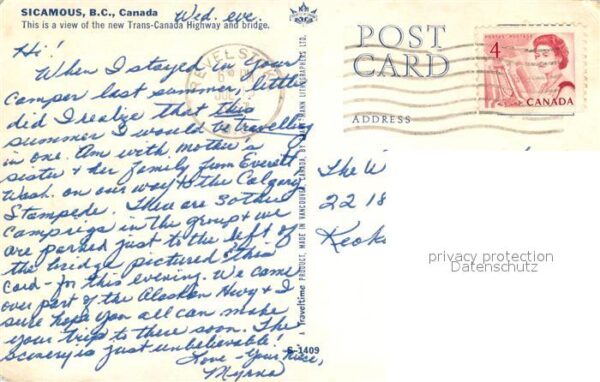 SICAMOUS, B.C., Canada
This is a view of the new Trans-Canada Highway and bridge.
Wed. eve.
Hi!
When I stayed in your
camper last summer, little
did I realize that this
summer I would be travelling
in one. Am with mother's
sister & her family from Everett
Wash. on our way to the Calgary
Stampede. There are 3 other
campers in the group & we
are parked just to the left of
the bridge pictured this
card - for this evening. We came
over part of the Alaskan Hwy & I
sure hope you all can make
your trip to there soon. The
scenery is just unbelievable!
Love - Your Niece,
Myrna
S-1409
A Traveltime PRODUCT. MADE IN VANCOUVER, CANADA, BY GRANT-MANN LITHOGRAPHERS LTD.
REVELSTOKE
POST
CARD
ADDRESS
4
POSTES POSTAGE
CANADA
The W
2218
Keok
privacy protection
Datenschutz